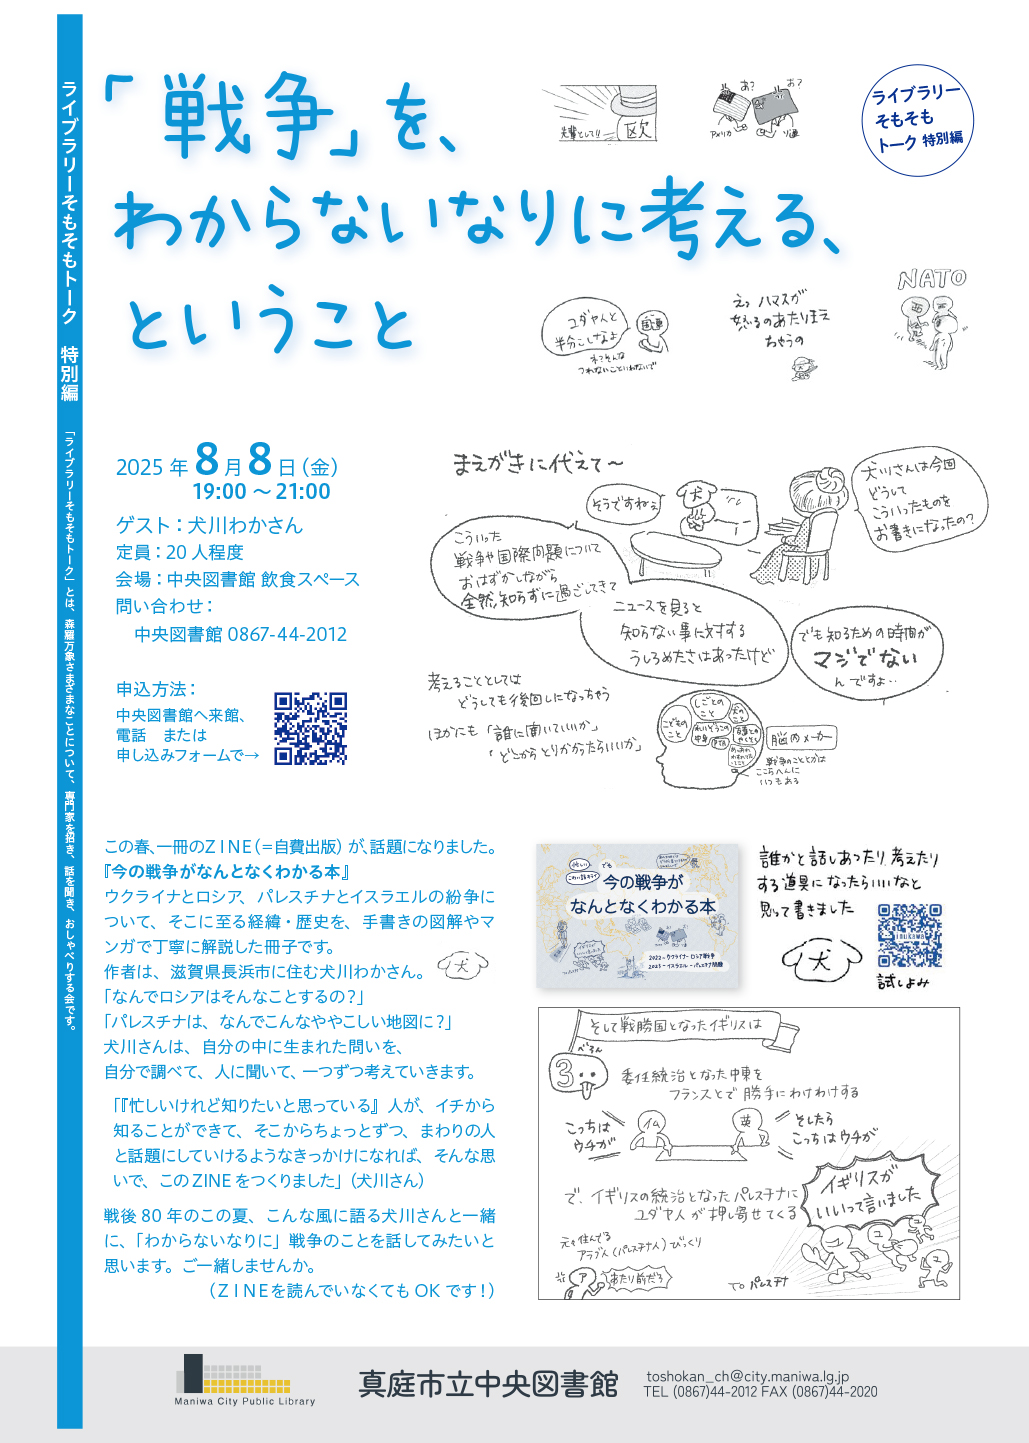 ライブラリーそもそもトーク 特別編
「ライブラリーそもそもトーク」とは、森羅万象さまざまなことについて、専門家を招き、話を聞き、おしゃべりする会です。
「戦争」を、
わからないなりに考える、
ということ
ライブラリー
そもそも
トーク 特別編
先輩として!!
欧
あ?
お?
アメリカ
ソ連
ユダヤ人と
半分こしなよ
国連
ネ?そんな
つれないこといわないで
えっ ハマスが
怒るのあたりまえ
ちゃうの
NATO
西
2025 年 8 月 8 日(金)
19:00 ～ 21:00
ゲスト:犬川わかさん
定員:20 人程度
会場:中央図書館 飲食スペース
問い合わせ:
中央図書館 0867-44-2012
申込方法:
中央図書館へ来館、
電話 または
申し込みフォームで→
まえがきに代えて～
犬川さんは今回
どうして
こういったものを
お書きになったの?
そうですねぇ
犬
こういった
戦争や国際問題について
おはずかしながら
全然知らずに過ごしてきて
ニュースを見ると
知らない事に対する
うしろめたさはあったけど
でも知るための時間が
マジでない
んですよ‥
考えることとしては
どうしても後回しになっちゃう
ほかにも「誰に聞いていいか」
「どこからとりかかったらいいか」
しごとの
こと
こどもの
こと
脳内メーカー
戦争のこととかは
ここらへんに
いつもある
この春、一冊のＺＩＮＥ(=自費出版) が、話題になりました。
『今の戦争がなんとなくわかる本』
ウクライナとロシア、パレスチナとイスラエルの紛争に
ついて、そこに至る経緯・歴史を、手書きの図解やマ
ンガで丁寧に解説した冊子です。
作者は、滋賀県長浜市に住む犬川わかさん。
犬
「なんでロシアはそんなことするの？」
「パレスチナは、なんでこんなややこしい地図に？」
犬川さんは、自分の中に生まれた問いを、
自分で調べて、人に聞いて、一つずつ考えていきます。
「『忙しいけれど知りたいと思っている』人が、イチから
知ることができて、そこからちょっとずつ、まわりの人
と話題にしていけるようなきっかけになれば、そんな思
いで、この ZINE をつくりました」（犬川さん）
戦後 80 年のこの夏、こんな風に語る犬川さんと一緒
に、「わからないなりに」戦争のことを話してみたいと
思います。ご一緒しませんか。
（ＺＩＮＥを読んでいなくても OK です！）
忙しい
でも
今の戦争が
なんとなくわかる本
2022～ウクライナ・ロシア戦争
2023～イスラエル・パレスチナ問題
誰かと話しあったり、考えたり
する道具になったらいいなと
思って書きました
犬
inukawa
試しよみ
そして戦勝国となったイギリスは
べろん
3
委任統治となった中東を
フランスとで勝手にわけわけする
こっちは
ウチが
仏
英
そしたら
こっちはウチが
で、イギリスの統治となったパレスチナに
ユダヤ人が押し寄せてくる
イギリスが
いいって言いました
元々住んでる
アラブ人(パレスチナ人)びっくり
ア
あたり前だろ
ユ
To パレスチナ
Maniwa City Public Library
真庭市立中央図書館
toshokan_ch@city.maniwa.lg.jp
TEL (0867)44-2012 FAX (0867)44-2020